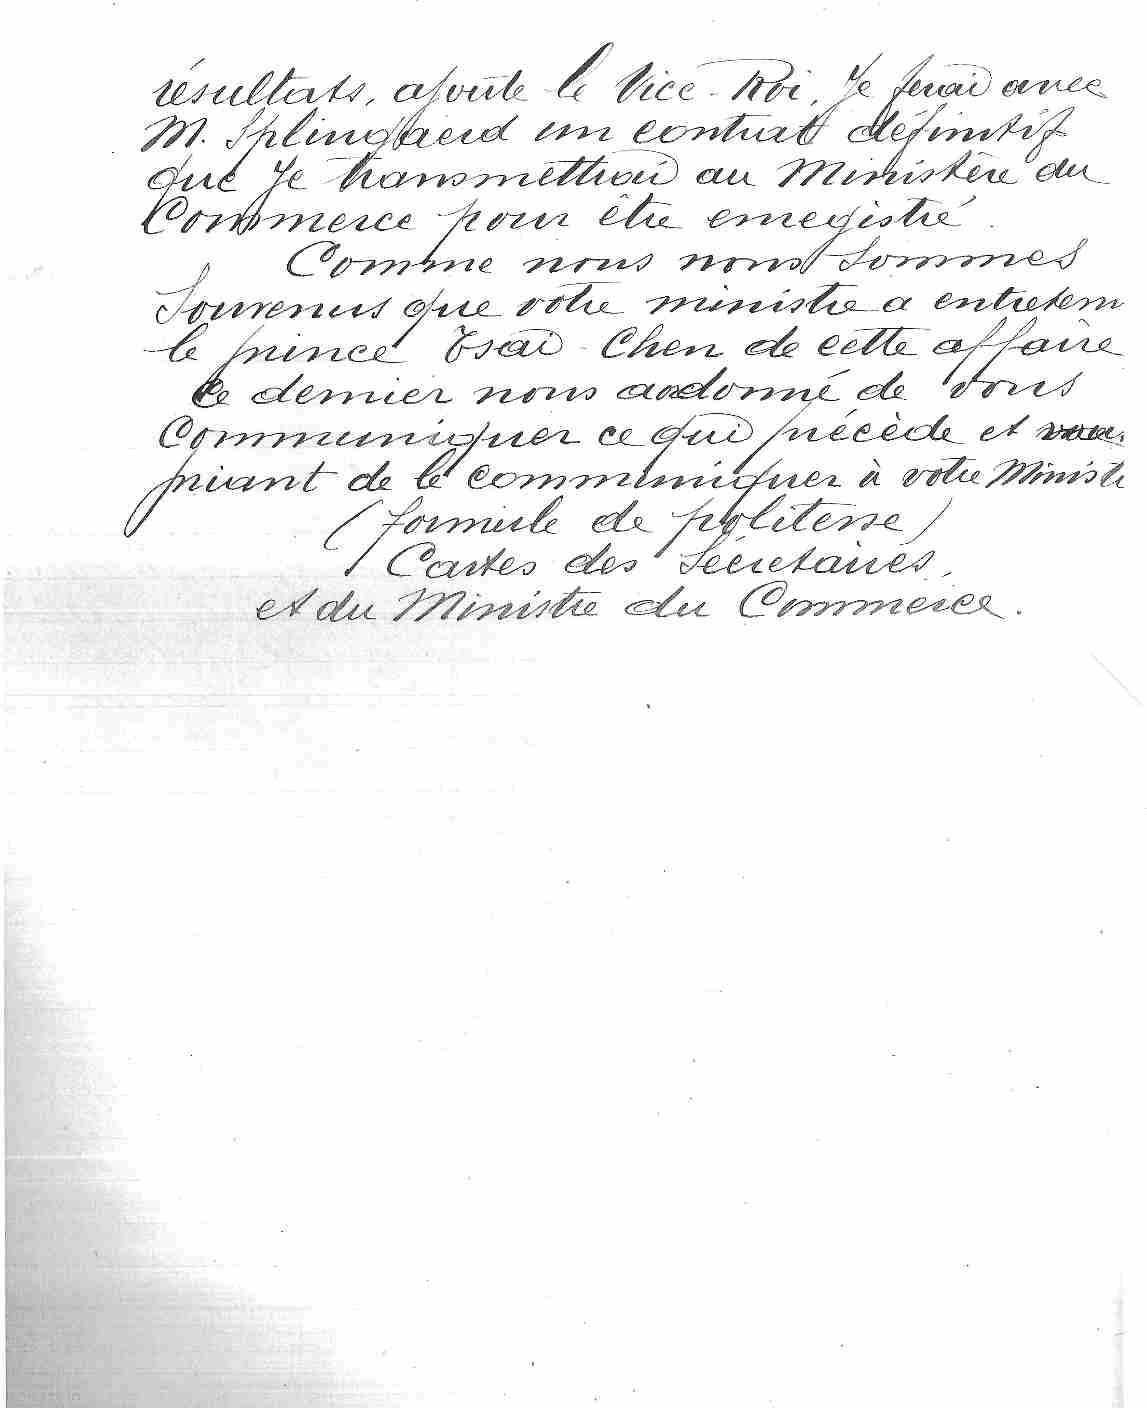 résultats, ajoute le Vice-Roi, Je ferai avec
M. Splingaerd un contrat définitif
que Je transmettrai au Ministère du
Commerce pour être enregistré.
Comme nous nous sommes
Souvenus que votre ministre a entretenu
le prince Tsai-Chen de cette affaire
Ce dernier nous a ordonné de vous
Communiquer ce qui précède et
priant de le communiquer à votre Ministre
(formule de politesse)
Cartes des Sécretaires,
et du Ministre du Commerce.